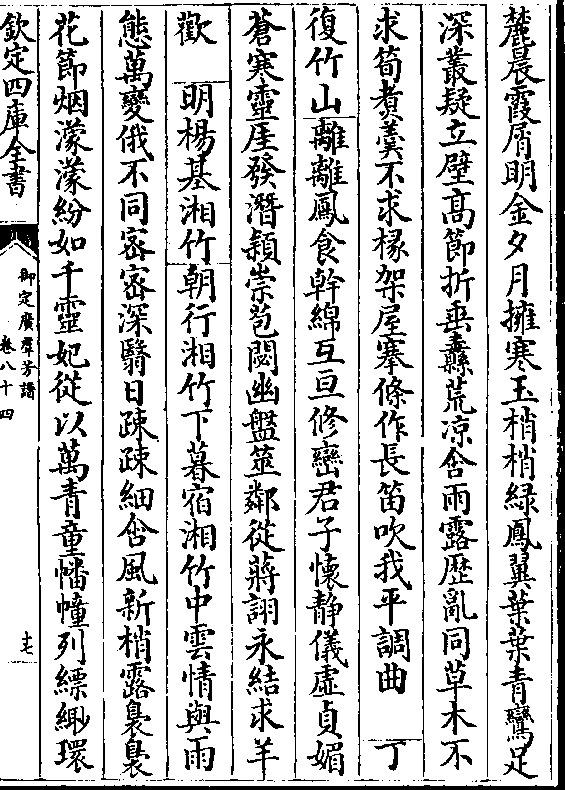 麓晨霞屑明金夕月擁寒玉梢梢綠鳳翼葉葉青鸞足
深叢疑立壁高節折垂纛荒凉含雨露歴亂同草木不
求筍煮羮不求椽架屋搴條作長笛吹我平調曲 丁
復竹山離離鳳食幹綿互亘修巒君子懷静儀虚貞媚
蒼寒靈厓發潛穎崇苞閟幽盤筮鄰從蔣詡永結求羊
歡 明楊基湘竹朝行湘竹下暮宿湘竹中雲情與雨
態萬變俄不同宻宻深翳日疎疎細含風新梢露裊裊
花節烟濛濛紛如千靈妃從以萬青童幡幢列縹緲環
欽定四庫全書
御定廣羣芳譜
卷八十四
十七